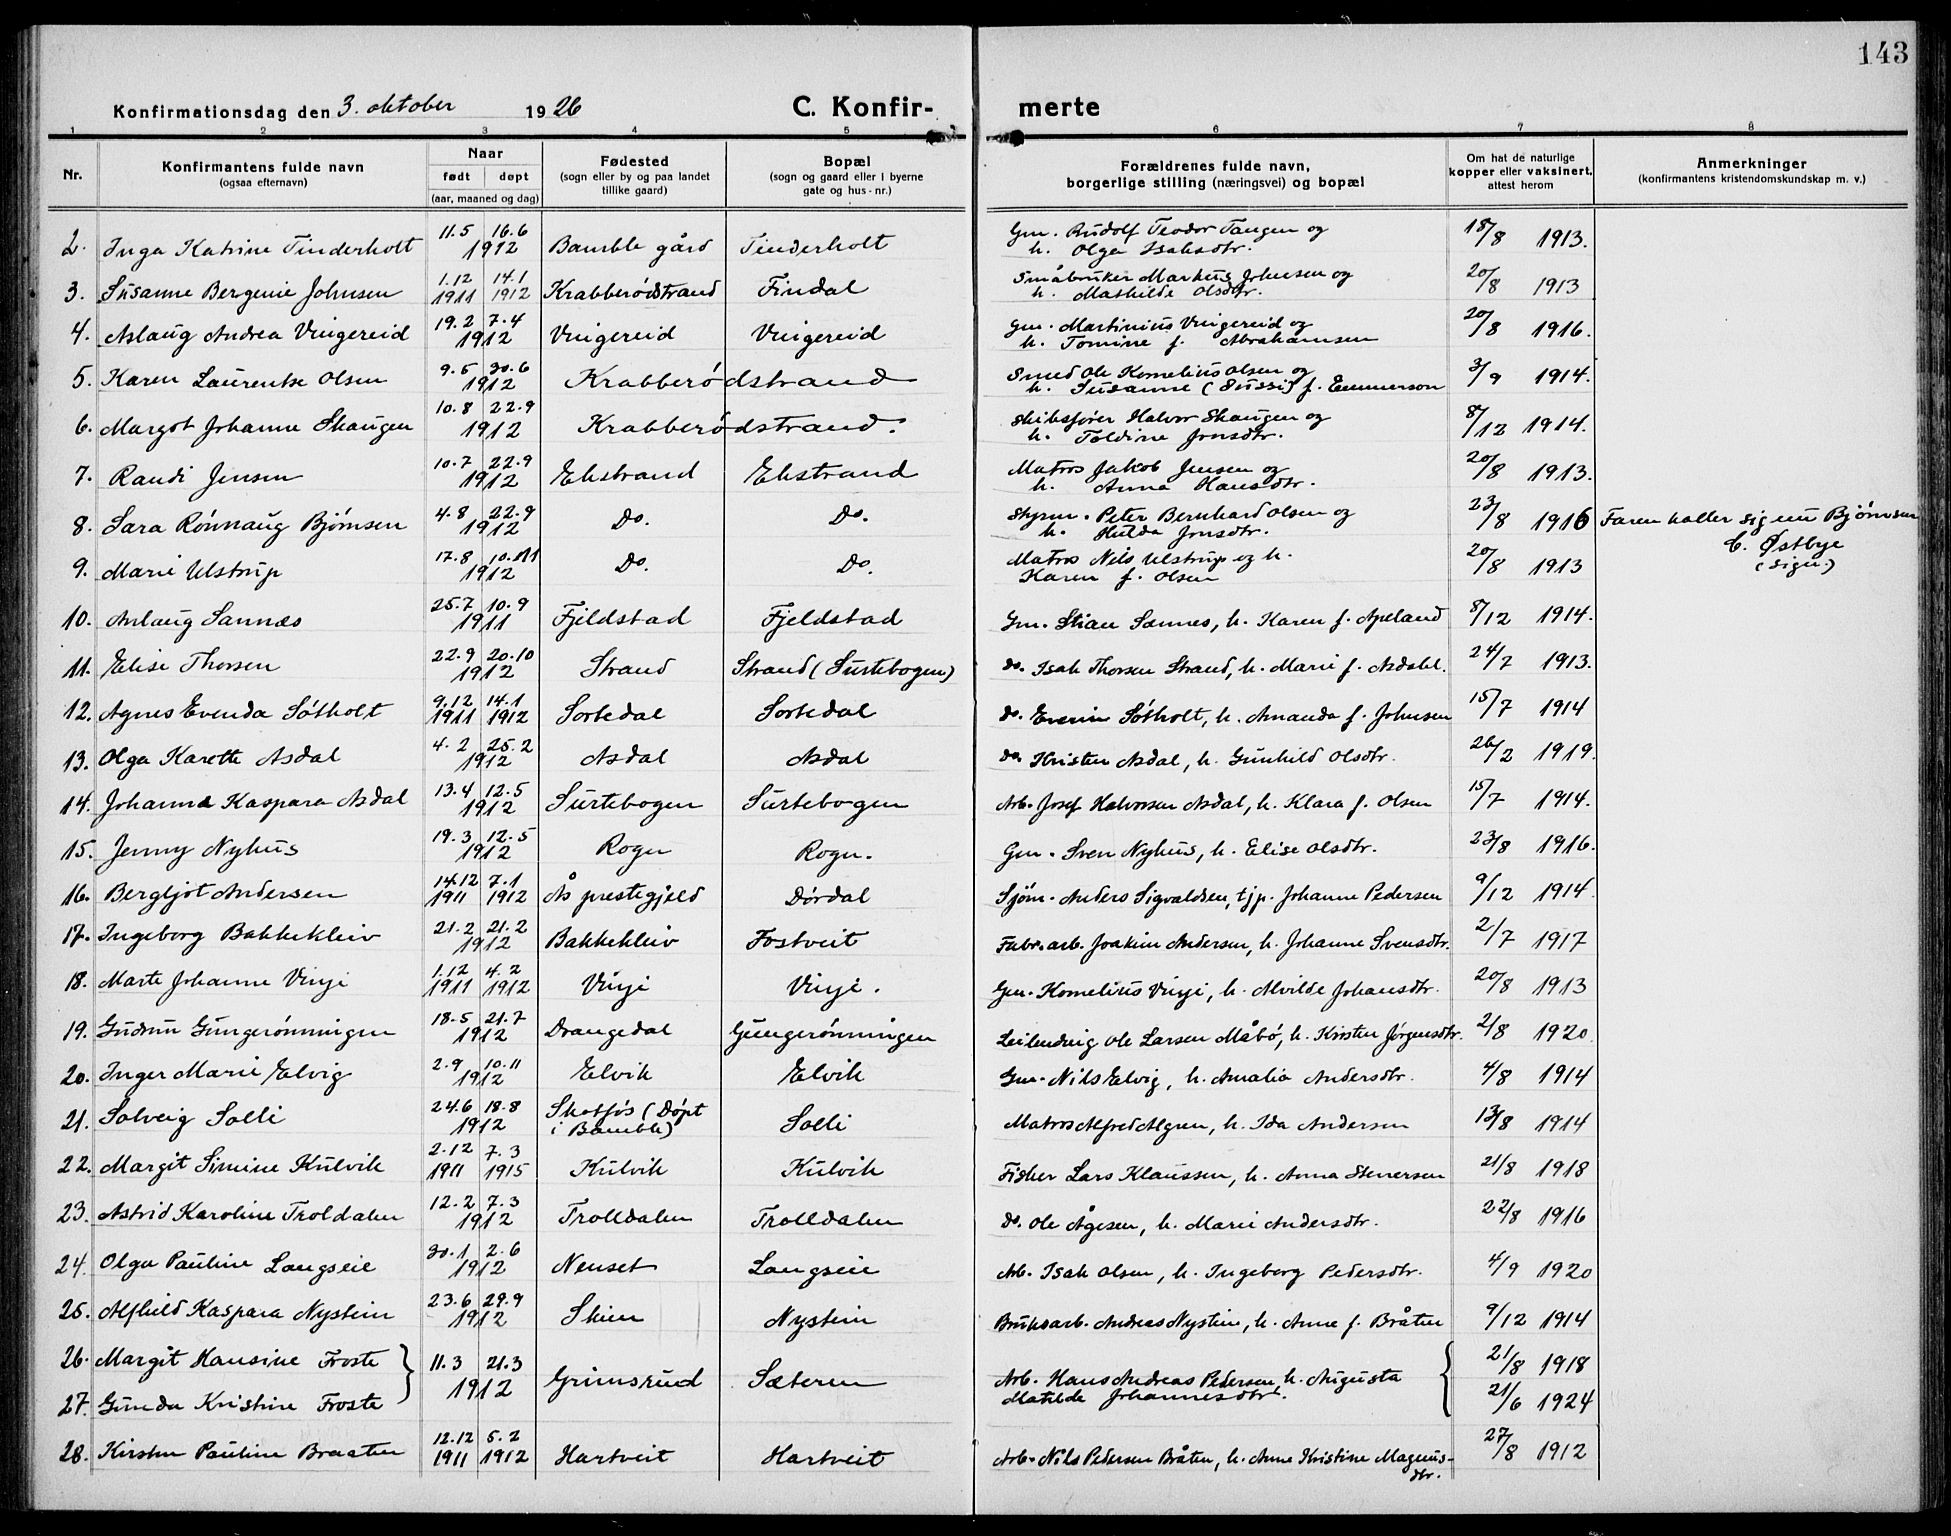 143
Konfirmationsdag den 3. oktober 1926 C. Konfirmerte
1 2 3 4 5 6 7 8
Nr. | Konfirmantens fulde navn (ogsaa efternavn) | Naar født døpt (aar, maaned og dag) | Fødested (sogn eller by og paa landet tillike gaard) | Bopæl (sogn og gaard eller i byerne gate og hus-nr.) | Forældrenes fulde navn, borgerlige stilling (næringsvei) og bopæl | Om hat de naturlige kopper eller vaksinert, attest herom | Anmerkninger (konfirmantens kristendomskundskap m. v.)
2. Inga Katrine Tinderholt 11.5 16.6 1912 Bamble gård Tinderholt Gm. Rudolf Teodor Tangen og h. Olga Isaksdtr. 18/8 1913.
3. Susanne Bergenie Johnsen 1.12 1911 14.1 1912 Krabberødstrand Findal Småbruker Markus Johnsen og h. Mathilde Olsdtr. 20/8 1913
4. Aslaug Andrea Vingereid 19.2 7.4 1912 Vingereid Vingereid Gm. Martinius Vingereid og h. Tomine f. Abrahamsen 20/8 1916.
5. Karen Laurentse Olsen 9.5 30.6 1912 Krabberødstrand Smed Ole Kornelius Olsen og h. Susanne (Sussi) f. Emmerson 3/9 1914.
6. Margot Johanne Skaugen 10.8 22.9 1912 Krabberødstrand. Skibsfører Halvor Skaugen og h. Toldine Jonsdtr. 8/12 1914.
7. Randi Jensen 10.7 22.9 1912 Ekstrand Ekstrand Matros Jakob Jensen og h. Anna Hansdtr. 20/8 1913.
8. Sara Rønnaug Bjørnsen 4.8 22.9 1912 Do. Do. Styrm. Peter Bernhard Olsen og h. Hulda Jonsdtr. 23/8 1916 Faren kaller sig nu Bjørnsen C. Østbye (sign.)
9. Marie Ulstrup 17.8 10.11 1912 Do. Do. Matros Nils Ulstrup og h. Karen f. Olsen 20/8 1913
10. Anlaug Sannes 25.7 10.9 1911 Fjeldstad Fjeldstad Gm. Stian Sannes, h. Karen f. Apeland 8/12 1914.
11. Elise Thorsen 22.9 20.10 1912 Strand Strand (Surtebogen) Do. Isak Thorsen Strand, h. Marie f. Asdahl. 24/7 1913.
12. Agnes Evenda Søtholt 9.12 1911 14.1 1912 Sortedal Sortedal Do. Evenin Søtholt, h. Amanda f. Johnsen 15/7 1914
13. Olga Karette Asdal 4.2 25.2 1912 Asdal Asdal Do. Kristen Asdal, h. Gunhild Olsdtr. 26/2 1919.
14. Johanna Kaspara Asdal 13.4 12.5 1912 Surtebogen Surtebogen Arb. Josef Halvorsen Asdal, h. Klara f. Olsen 15/7 1914.
15. Jenny Nyhus 19.3 12.5 1912 Rogn Rogn. Gm. Sven Nyhus, h. Elise Olsdtr. 23/8 1916.
16. Bergljot Andersen 14.12 1911 7.1 1912 Ås prestegjeld Dørdal Sjøm. Anders Sigvaldsen, tjp. Johanne Pedersen 9/12 1914
17. Ingeborg Bakkekleiv 21.2 21.2 1912 Bakkekleiv Fostveit Fabr.arb. Joakim Andersen, h. Johanne Svensdtr. 2/7 1917
18. Marte Johanne Vinje 1.12 1911 4.2 1912 Vinje Vinje. Gm. Kornelius Vinje, h. Alvilde Johansdtr. 20/8 1913
19. Gudrun Gungerønningen 18.5 21.7 1912 Drangedal Gungerønningen Leilending Ole Larsen Måbø, h. Kirsten Jørgensdtr. 2/8 1920
20. Inger Marie Elvig 2.9 10.11 1912 Elvik Elvik Gm. Nils Elvig, h. Amalia Andersdtr. 4/8 1914
21. Solveig Solli 24.6 18.8 1912 Skotfos (Døpt i Bamble) Solli Matros Alfred Algren, h. Ida Andersen 13/8 1914
22. Margit Simine Kulvik 2.12 1911 7.3 1915 Kulvik Kulvik Fisker Lars Klaussen, h. Anna Stenersen 21/8 1918
23. Astrid Karoline Troldalen 12.2 7.3 1912 Trolldalen Trolldalen Do. Ole Ågesen, h. Marie Andersdtr. 22/8 1916
24. Olga Pauline Langseie 30.1 2.6 1912 Nenset Langseie Arb. Isak Olsen, h. Ingeborg Pedersdtr. 4/9 1920
25. Alfhild Kaspara Nystein 23.6 29.9 1912 Skien Nystein Bruksarb. Andreas Nystein, h. Anne f. Bråten 9/12 1914
26. Margit Hansine Froste 11.3 21.3 1912 Grimsrud Sæteren Arb. Hans Andreas Pedersen h. Augusta Matilde Johannesdtr. 21/8 1918
27. Gunda Kristine Froste 21/6 1924
28. Kirsten Pauline Braaten 12.12 1911 5.2 1912 Hartveit Hartveit Arb. Nils Pedersen Bråten, h. Anne Kristine Magnusdtr. 27/8 1912